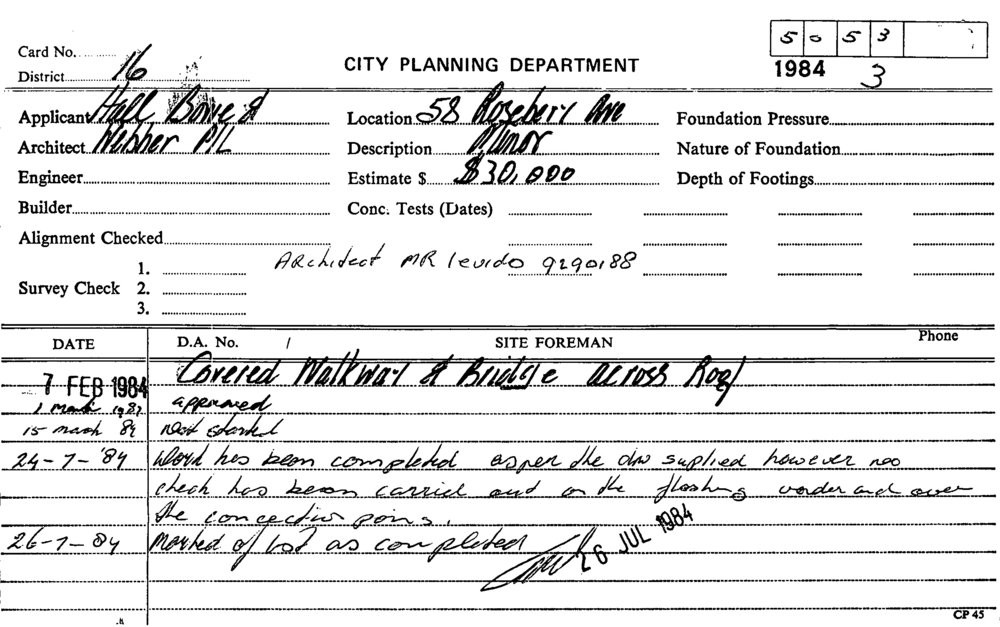 5 0 5 3
Card No. 16
District
CITY PLANNING DEPARTMENT
1984 3
Applicant Hall Bowe &
Location 58 Rosebery Ave
Foundation Pressure
Architect Webber P/L
Description Minor
Nature of Foundation
Engineer
Estimate $ $30,000
Depth of Footings
Builder
Conc. Tests (Dates)
Alignment Checked
Architect MR levido 9290188
Survey Check 1.
2.
3.
DATE D.A. No. / SITE FOREMAN Phone
7 FEB 1984 Covered Walkway & Bridge across Road
1 March approved
15 march 84 not started
24-7-'84 Work has been completed as per the drw suplied however no
check has been carried out on the flashing under and over
the
26-7-84 marked of list as completed
26 JUL 1984
CP 45